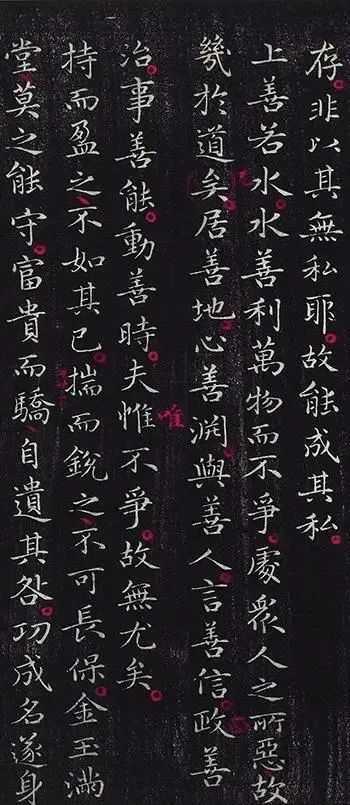 存。非以其無私耶。故能成其私。
上善若水。水善利萬物而不爭。處眾人之所惡。故
幾於道矣。居善地。心善淵、與善人。言善信。政善
唯
治。事善能。動善時。夫惟不爭。故無尤矣。
持而盈之、不如其已。揣而銳之、不可長保。金玉滿
堂、莫之能守。富貴而驕、自遺其咎。功成名遂身